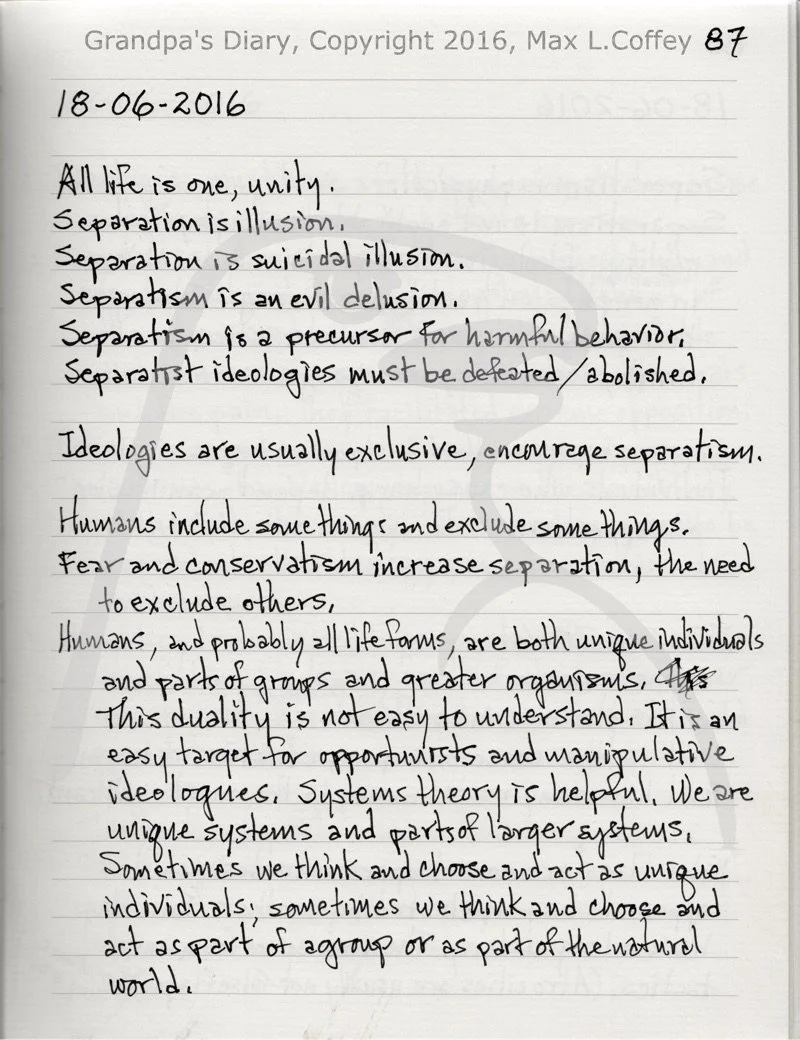 Grandpa's Diary, Copyright 2016, Max L.Coffey 87
18-06-2016
All life is one, unity.
Separation is illusion.
Separation is suicidal illusion.
Separatism is an evil delusion.
Separatism is a precursor for harmful behavior.
Separatist ideologies must be defeated/abolished.
Ideologies are usually exclusive, encourage separatism.
Humans include some things and exclude some things.
Fear and conservatism increase separation, the need
to exclude others.
Humans, and probably all life forms, are both unique individuals
and parts of groups and greater organisms.
This duality is not easy to understand. It is an
easy target for opportunists and manipulative
ideologues. Systems theory is helpful. We are
unique systems and parts of larger systems.
Sometimes we think and choose and act as unique
individuals; sometimes we think and choose and
act as part of a group or as part of the natural
world.